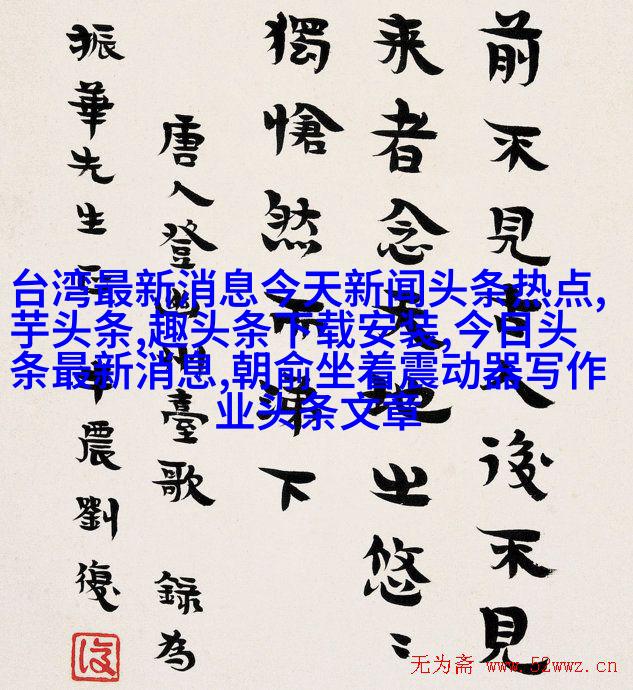 前不見古人後不見
来者念天地之悠〻
獨愴然而涕下
唐人登幽州臺歌 錄為
振華先生 半農劉復
台湾最新消息今天新闻头条热点,
芋头条,趣头条下载安装,今日头
条最新消息,朝俞坐着震动器写作
业头条文章
无为斋 www.52wwz.cn